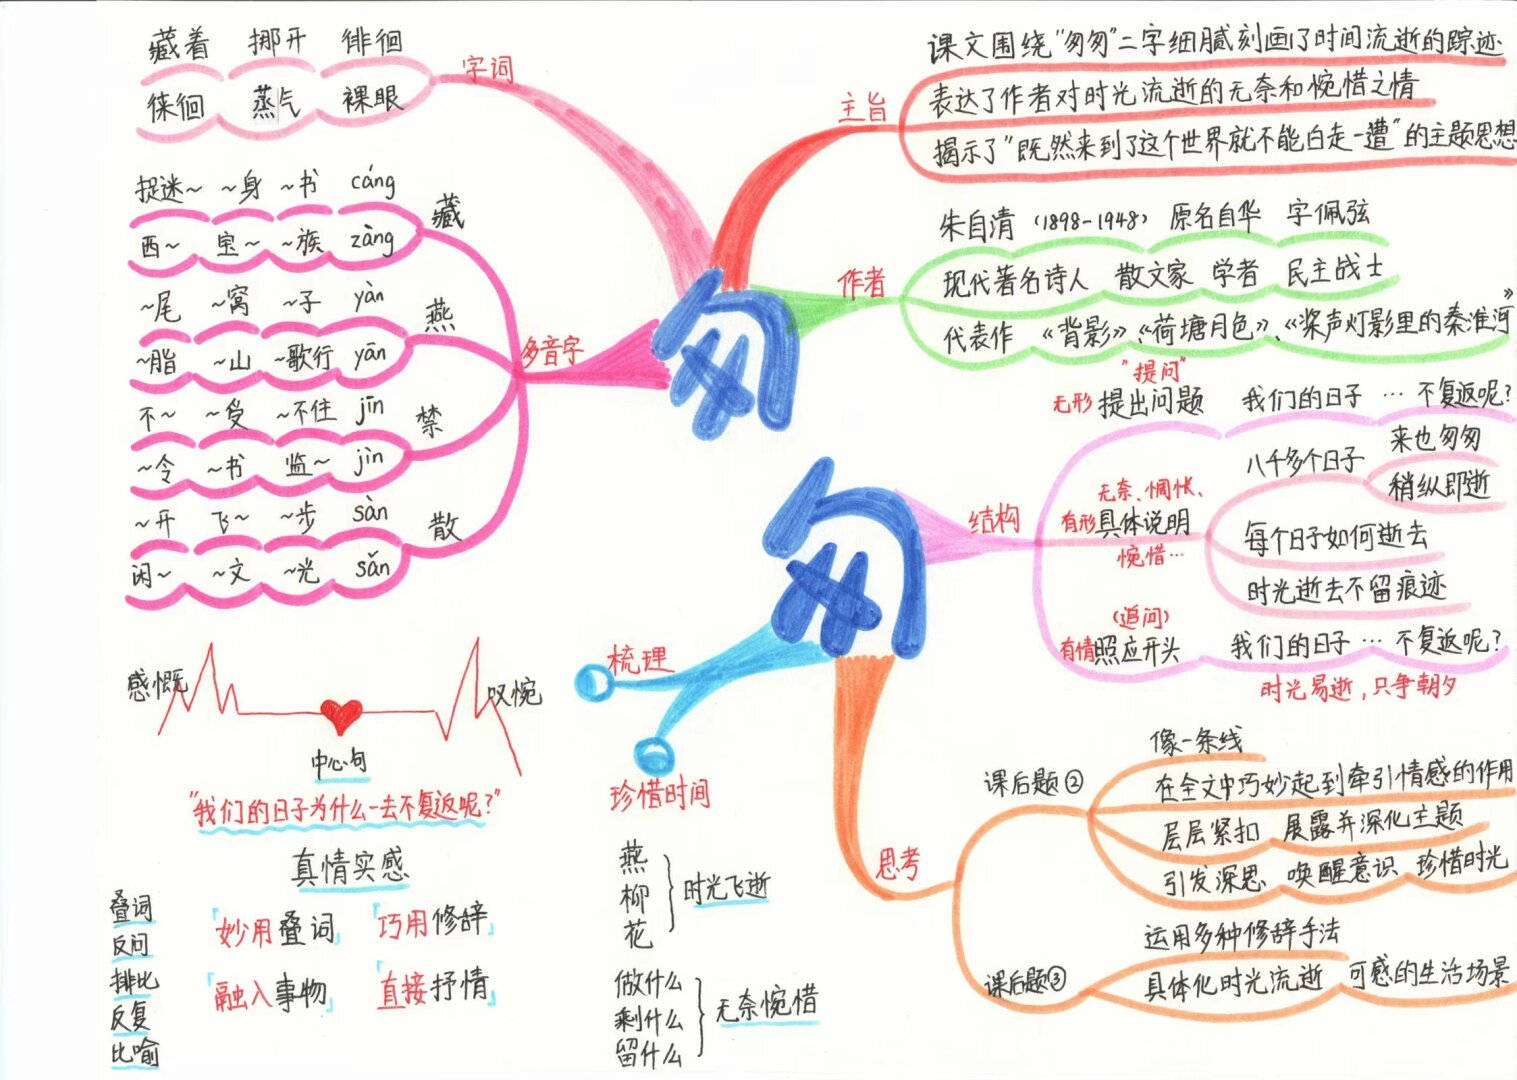 藏着 挪开 徘徊
徕徊 蒸气 裸眼
字词
捉迷~ ~身 ~书 cáng
西~ 宝~ ~族 zàng
藏
~尾 ~窝 ~子 yàn
~脂 ~山 ~歌行 yān
燕
不~ ~受 ~不住 jīn
~令 ~书 监~ jìn
禁
~开 飞~ ~步 sàn
闲~ ~文 ~光 sǎn
散
多音字
匆匆
主旨
课文围绕"匆匆"二字细腻刻画了时间流逝的踪迹
表达了作者对时光流逝的无奈和惋惜之情
揭示了"既然来到了这个世界就不能白走一遭"的主题思想
作者
朱自清 (1898-1948) 原名自华 字佩弦
现代著名诗人 散文家 学者 民主战士
代表作 《背影》《荷塘月色》《桨声灯影里的秦淮河》
结构
"提问"
无形 提出问题 我们的日子 … 不复返呢?
无奈、惆怅、
有形 具体说明
惋惜…
八千多个日子
来也匆匆
稍纵即逝
每个日子如何逝去
时光逝去不留痕迹
(追问)
有情 照应开头 我们的日子 … 不复返呢?
时光易逝,只争朝夕
思考
课后题②
像一条线
在全文中巧妙起到牵引情感的作用
层层紧扣 展露并深化主题
引发深思 唤醒意识 珍惜时光
课后题③
运用多种修辞手法
具体化时光流逝 可感的生活场景
梳理
珍惜时间
燕
柳
花
时光飞逝
做什么
剩什么
留什么
无奈惋惜
感慨
叹惋
中心句
"我们的日子为什么一去不复返呢?"
真情实感
叠词
反问
排比
反复
比喻
「妙用叠词」 「巧用修辞」
「融入事物」 「直接抒情」